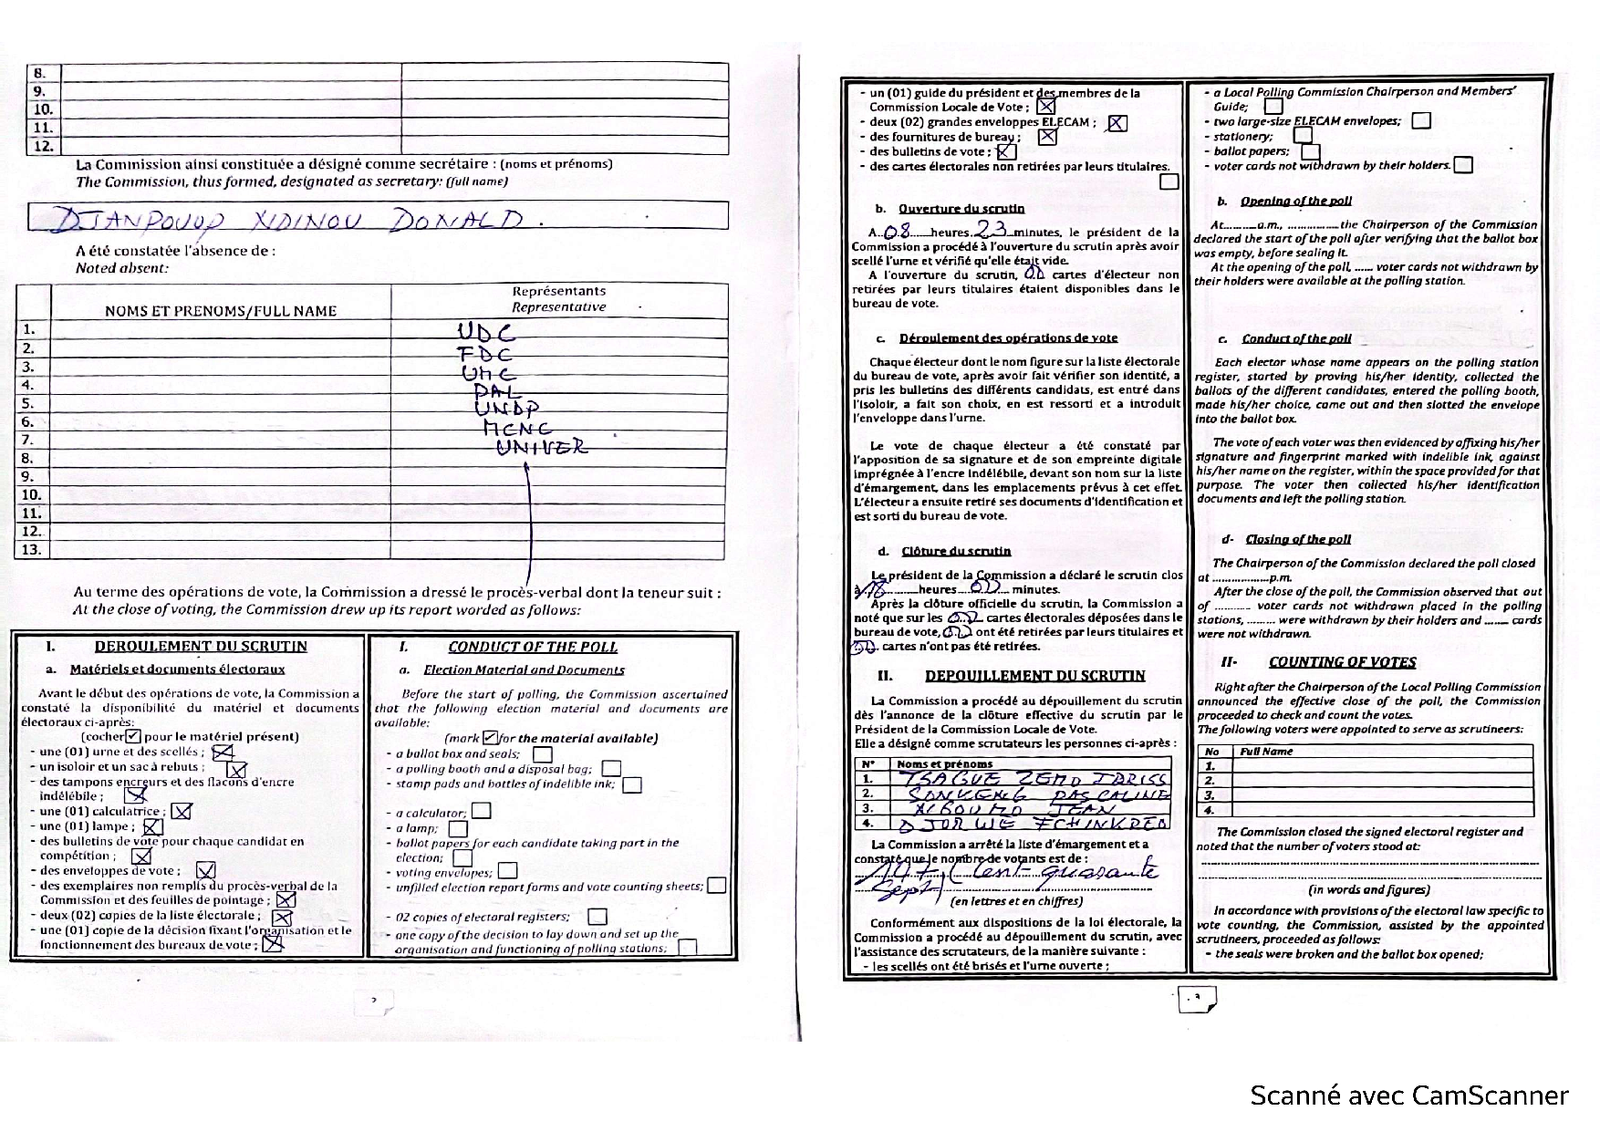 8.
9.
10.
11.
12.
La Commission ainsi constituée a désigné comme secrétaire : (noms et prénoms)
The Commission, thus formed, designated as secretary: (full name)
DJANPOUOP DONALD.
A été constatée l'absence de :
Noted absent:
NOMS ET PRENOMS/FULL NAME
Représentants
Representative
1. UDC
2. FDC
3. UMC
4. PAL
5. UNDP
6. MCNC
7. UNIVER
8.
9.
10.
11.
12.
13.
Au terme des opérations de vote, la Commission a dressé le procès-verbal dont la teneur suit :
At the close of voting, the Commission drew up its report worded as follows:
I. DEROULEMENT DU SCRUTIN
a. Matériels et documents électoraux
Avant le début des opérations de vote, la Commission a
constaté la disponibilité du matériel et documents
électoraux ci-après:
(cocher ☑ pour le matériel présent)
- une (01) urne et des scellés ; ☒
- un isoloir et un sac à rebuts ; ☒
- des tampons encreurs et des flacons d'encre
indélébile ; ☒
- une (01) calculatrice ; ☒
- une (01) lampe ; ☒
- des bulletins de vote pour chaque candidat en
compétition ; ☒
- des enveloppes de vote ; ☒
- des exemplaires non remplis du procès-verbal de la
Commission et des feuilles de pointage ; ☒
- deux (02) copies de la liste électorale ; ☒
- une (01) copie de la décision fixant l'organisation et le
fonctionnement des bureaux de vote ; ☒
I. CONDUCT OF THE POLL
a. Election Material and Documents
Before the start of polling, the Commission ascertained
that the following election material and documents are
available:
(mark ☑ for the material available)
- a ballot box and seals; ☐
- a polling booth and a disposal bag; ☐
- stamp pads and bottles of indelible ink; ☐
- a calculator; ☐
- a lamp; ☐
- ballot papers for each candidate taking part in the
election; ☐
- voting envelopes; ☐
- unfilled election report forms and vote counting sheets; ☐
- 02 copies of electoral registers; ☐
- one copy of the decision to lay down and set up the
organisation and functioning of polling stations; ☐
2
- un (01) guide du président et des membres de la
Commission Locale de Vote ; ☒
- deux (02) grandes enveloppes ELECAM ; ☒
- des fournitures de bureau ; ☒
- des bulletins de vote ; ☒
- des cartes électorales non retirées par leurs titulaires.
☐
b. Ouverture du scrutin
A 08 heures 23 minutes, le président de la
Commission a procédé à l'ouverture du scrutin après avoir
scellé l'urne et vérifié qu'elle était vide.
A l'ouverture du scrutin, 00 cartes d'électeur non
retirées par leurs titulaires étaient disponibles dans le
bureau de vote.
c. Déroulement des opérations de vote
Chaque électeur dont le nom figure sur la liste électorale
du bureau de vote, après avoir fait vérifier son identité, a
pris les bulletins des différents candidats, est entré dans
l'isoloir, a fait son choix, en est ressorti et a introduit
l'enveloppe dans l'urne.
Le vote de chaque électeur a été constaté par
l'apposition de sa signature et de son empreinte digitale
imprégnée à l'encre indélébile, devant son nom sur la liste
d'émargement, dans les emplacements prévus à cet effet.
L'électeur a ensuite retiré ses documents d'identification et
est sorti du bureau de vote.
d. Clôture du scrutin
Le président de la Commission a déclaré le scrutin clos
à 18 heures 00 minutes.
Après la clôture officielle du scrutin, la Commission a
noté que sur les 00 cartes électorales déposées dans le
bureau de vote, 00 ont été retirées par leurs titulaires et
00 cartes n'ont pas été retirées.
II. DEPOUILLEMENT DU SCRUTIN
La Commission a procédé au dépouillement du scrutin
dès l'annonce de la clôture effective du scrutin par le
Président de la Commission Locale de Vote.
Elle a désigné comme scrutateurs les personnes ci-après :
N° Noms et prénoms
1. TSAGUE ZEMO IDRISS
2. SONKENG PASCALINE
3. JEAN
4.
La Commission a arrêté la liste d'émargement et a
constaté que le nombre de votants est de :
147, (Cent quarante
Sept)
(en lettres et en chiffres)
Conformément aux dispositions de la loi électorale, la
Commission a procédé au dépouillement du scrutin, avec
l'assistance des scrutateurs, de la manière suivante :
- les scellés ont été brisés et l'urne ouverte ;
- a Local Polling Commission Chairperson and Members'
Guide; ☐
- two large-size ELECAM envelopes; ☐
- stationery; ☐
- ballot papers; ☐
- voter cards not withdrawn by their holders. ☐
b. Opening of the poll
At..........a.m., ............... the Chairperson of the Commission
declared the start of the poll after verifying that the ballot box
was empty, before sealing it.
At the opening of the poll, ...... voter cards not withdrawn by
their holders were available at the polling station.
c. Conduct of the poll
Each elector whose name appears on the polling station
register, started by proving his/her identity, collected the
ballots of the different candidates, entered the polling booth,
made his/her choice, came out and then slotted the envelope
into the ballot box.
The vote of each voter was then evidenced by affixing his/her
signature and fingerprint marked with indelible ink, against
his/her name on the register, within the space provided for that
purpose. The voter then collected his/her identification
documents and left the polling station.
d- Closing of the poll
The Chairperson of the Commission declared the poll closed
at ..................p.m.
After the close of the poll, the Commission observed that out
of ........... voter cards not withdrawn placed in the polling
stations, ......... were withdrawn by their holders and ....... cards
were not withdrawn.
II- COUNTING OF VOTES
Right after the Chairperson of the Local Polling Commission
announced the effective close of the poll, the Commission
proceeded to check and count the votes.
The following voters were appointed to serve as scrutineers:
No Full Name
1.
2.
3.
4.
The Commission closed the signed electoral register and
noted that the number of voters stood at:
(in words and figures)
In accordance with provisions of the electoral law specific to
vote counting, the Commission, assisted by the appointed
scrutineers, proceeded as follows:
- the seals were broken and the ballot box opened;
3
Scanné avec CamScanner